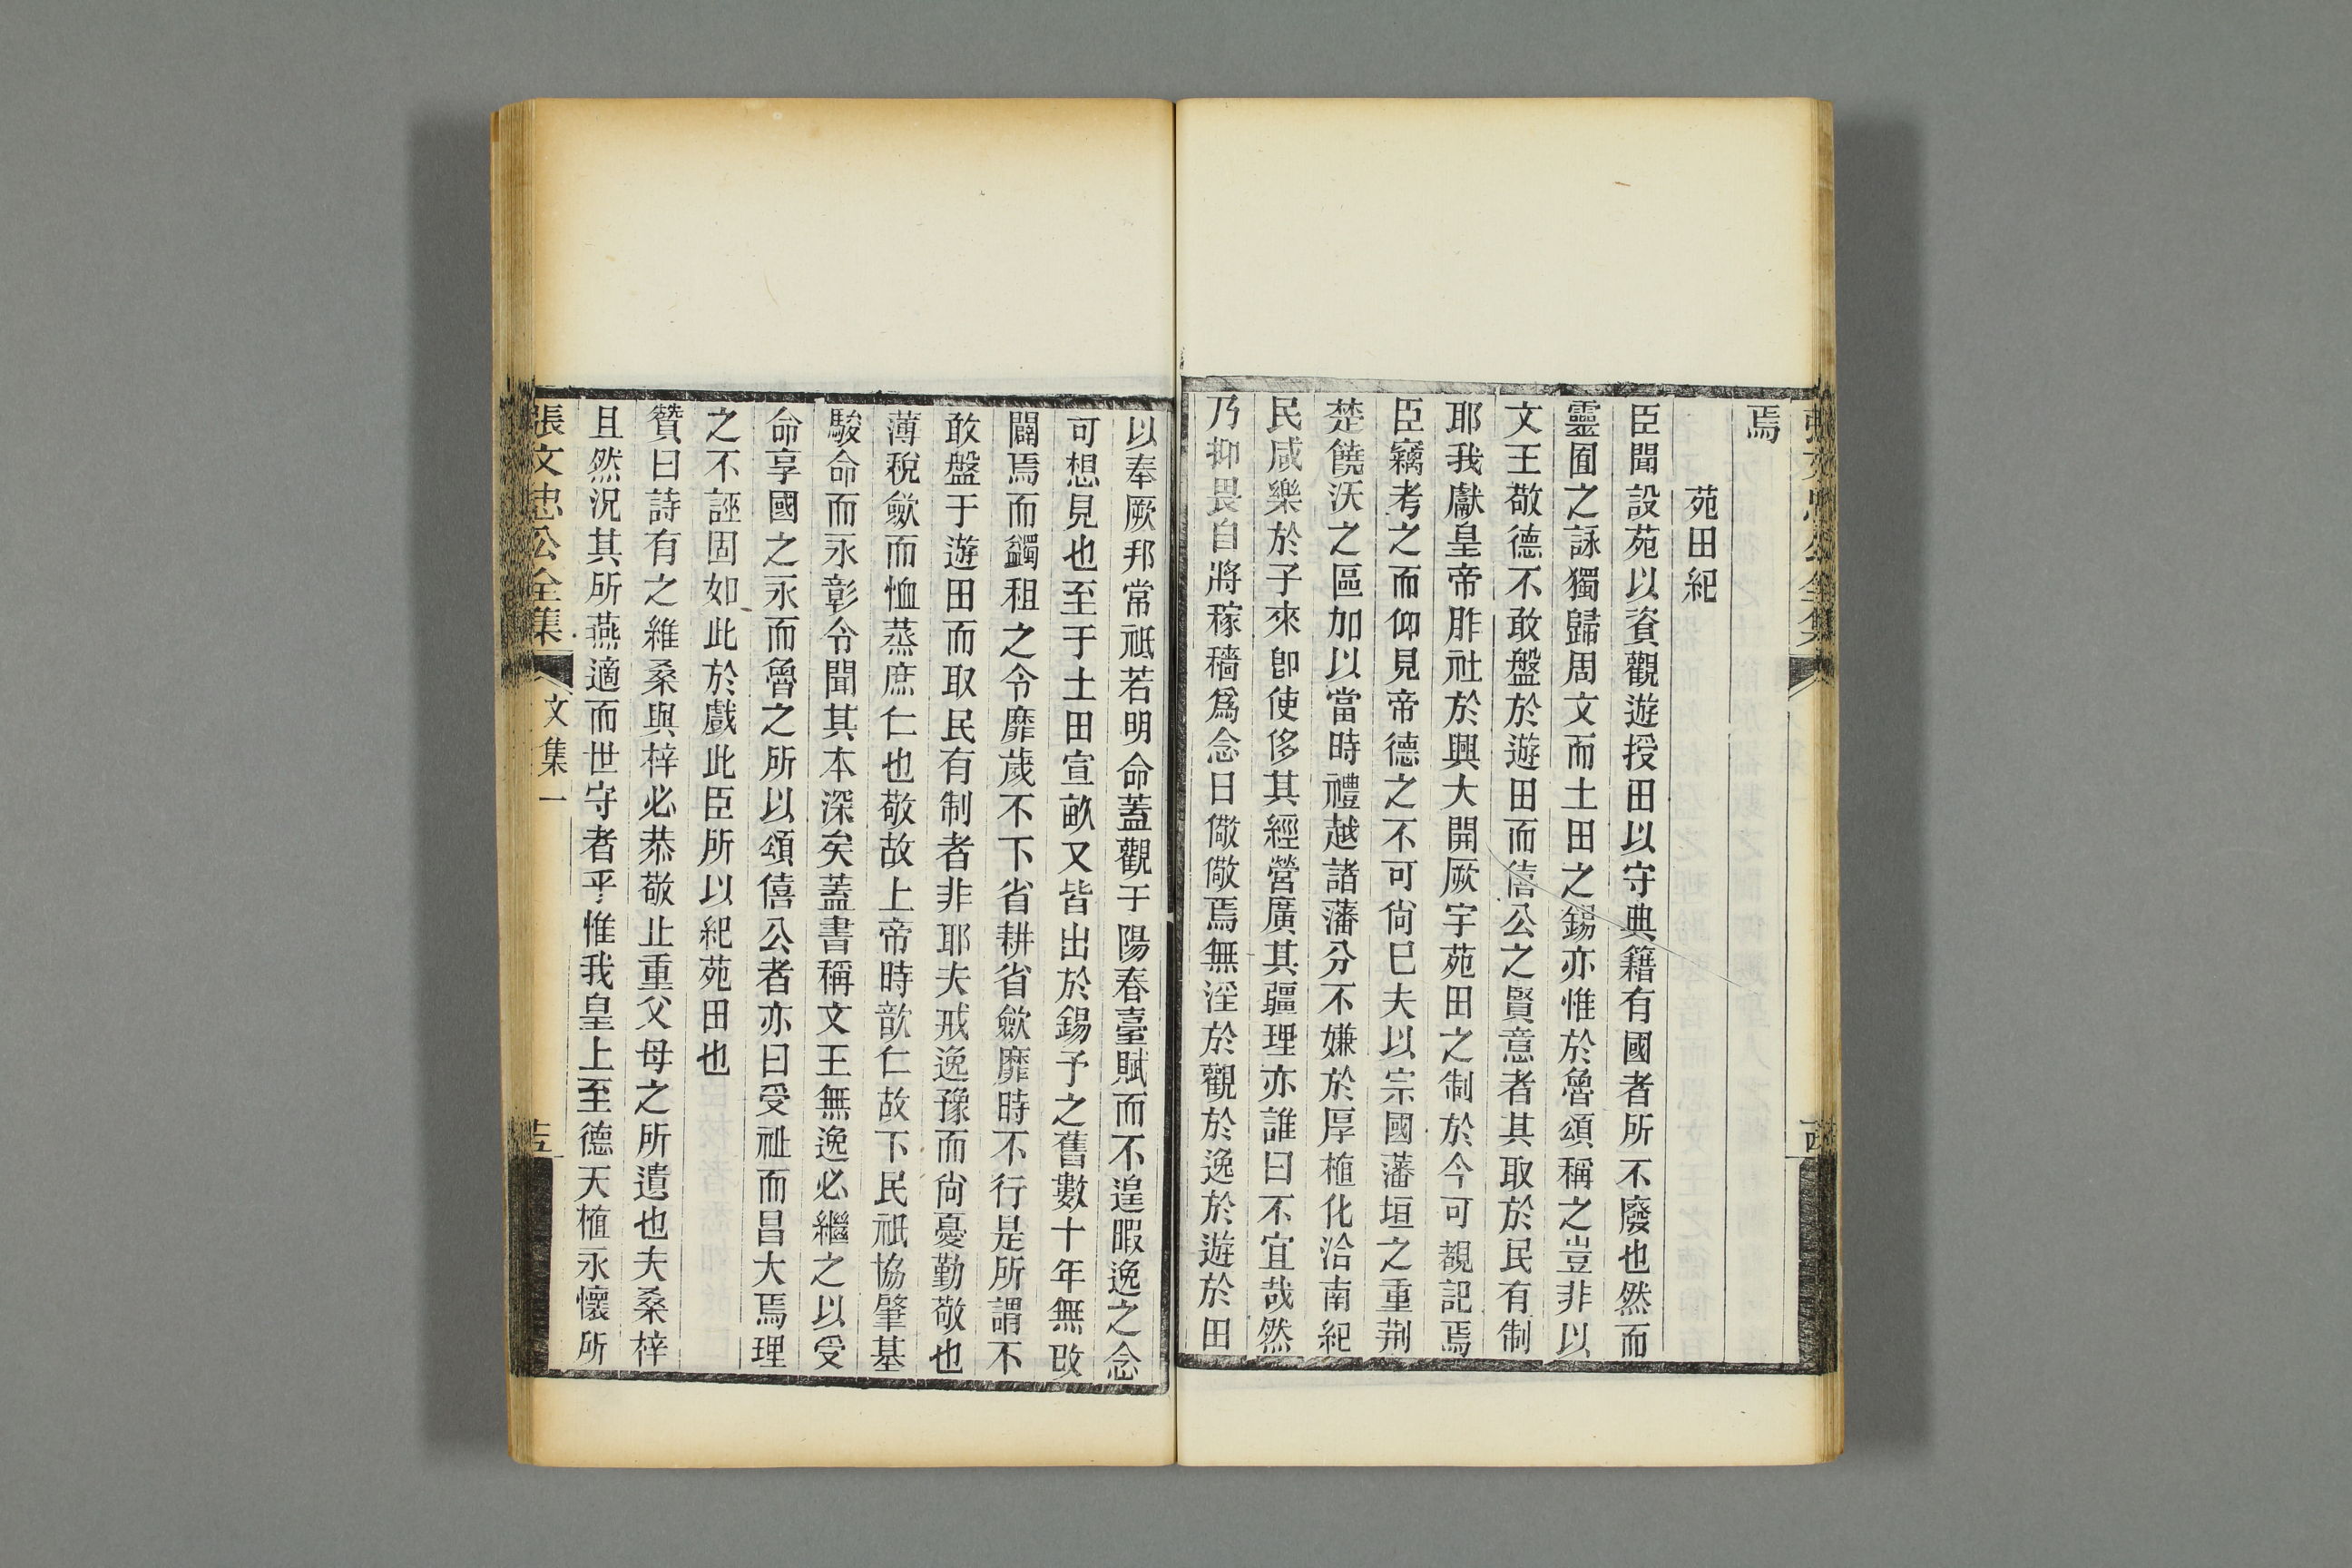 張文忠公全集
焉
苑田紀
臣聞設苑以資觀遊授田以守典籍有國者所不廢也然而
靈囿之詠獨歸周文而土田之錫亦惟於魯頌稱之豈非以
文王敬德不敢盤於遊田而僖公之賢意者其取於民有制
耶我獻皇帝胙社於興大開厥宇苑田之制於今可覩記焉
臣竊考之而仰見帝德之不可尙巳夫以宗國藩垣之重荆
楚饒沃之區加以當時禮越諸藩分不嫌於厚植化洽南紀
民咸樂於子來卽使侈其經營廣其疆理亦誰曰不宜哉然
乃抑畏自將稼穡爲念日儆儆焉無淫於觀於逸於遊於田
以奉厥邦常祗若明命蓋觀于陽春臺賦而不遑暇逸之念
可想見也至于土田宣畝又皆出於錫予之舊數十年無改
闢焉而蠲租之令靡歲不下省耕省歛靡時不行是所謂不
敢盤于遊田而取民有制者非耶夫戒逸豫而尙憂勤敬也
薄稅歛而恤蒸庶仁也敬故上帝時歆仁故下民祗協肇基
駿命而永彰令聞其本深矣蓋書稱文王無逸必繼之以受
命享國之永而魯之所以頌僖公者亦曰受祉而昌大焉理
之不誣固如此於戲此臣所以紀苑田也
贊曰詩有之維桑與梓必恭敬止重父母之所遺也夫桑梓
且然況其所燕適而世守者乎惟我皇上至德天植永懷所
張文忠公全集 文集一 十五